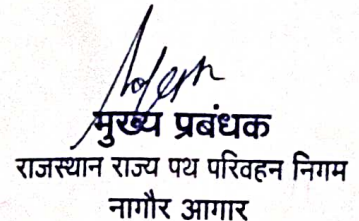 मुख्य प्रबंधक
राजस्थान राज्य पथ परिवहन निगम
नागौर आगार